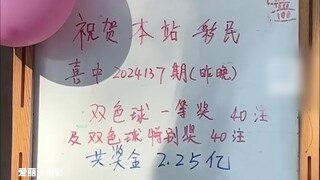 祝贺本站彩民
喜中2024137期(昨晚)
双色球一等奖40注
及双色球特别奖40注
共奖金2.25亿